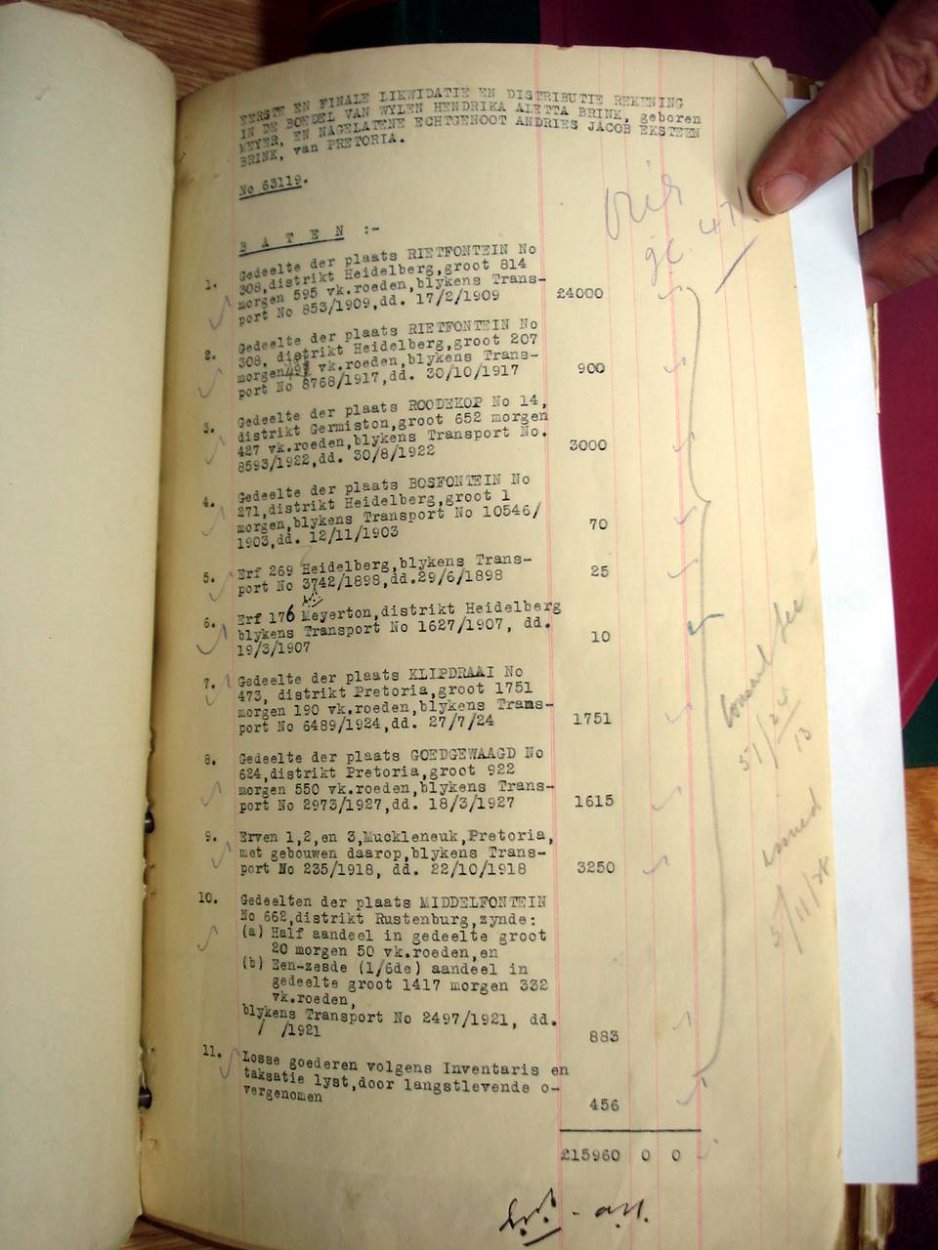 EERSTE EN FINALE LIKWIDATIE EN DISTRIBUTIE REKENING
IN DE BOEDEL VAN WYLEN HENDRIKA ALETTA BRINK, geboren
MEYER, EN NAGELATENE ECHTGENOOT ANDRIES JACOB EKSTEEN
BRINK, van PRETORIA.
No 63119.
B A T E N :-
1. Gedeelte der plaats RIETFONTEIN No
308,distrikt Heidelberg,groot 814
morgen 595 vk.roeden,blykens Trans-
port No 853/1909,dd. 17/2/1909 £4000
2. Gedeelte der plaats RIETFONTEIN No
308, distrikt Heidelberg,groot 207
morgen vk.roeden,blykens Trans-
port No 8768/1917,dd. 30/10/1917 900
3. Gedeelte der plaats ROODEKOP No 14,
distrikt Germiston,groot 652 morgen
427 vk.roeden,blykens Transport No.
8593/1922,dd. 30/8/1922 3000
4. Gedeelte der plaats BOSFONTEIN No
271,distrikt Heidelberg,groot 1
morgen,blykens Transport No 10546/
1903,dd. 12/11/1903 70
5. Erf 269 Heidelberg,blykens Trans-
port No 3742/1898,dd.29/6/1898 25
6. Erf 176 Meyerton,distrikt Heidelberg
blykens Transport No 1627/1907, dd.
19/3/1907 10
7. Gedeelte der plaats KLIPDRAAI No
473, distrikt Pretoria,groot 1751
morgen 190 vk.roeden,blykens Trans-
port No 6489/1924,dd. 27/7/24 1751
8. Gedeelte der plaats GOEDGEWAAGD No
624,distrikt Pretoria,groot 922
morgen 550 vk.roeden,blykens Trans-
port No 2973/1927,dd. 18/3/1927 1615
9. Erven 1,2,en 3,Muckleneuk,Pretoria,
met gebouwen daarop,blykens Trans-
port No 235/1918, dd. 22/10/1918 3250
10. Gedeelten der plaats MIDDELFONTEIN
No 662,distrikt Rustenburg,zynde:
(a) Half aandeel in gedeelte groot
20 morgen 50 vk.roeden,en
(b) Een-zesde (1/6de) aandeel in
gedeelte groot 1417 morgen 332
vk.roeden,
blykens Transport No 2497/1921, dd.
/ /1921 883
11. Losse goederen volgens Inventaris en
taksatie lyst,door langstlevende o-
vergenomen 456
£15960 0 0